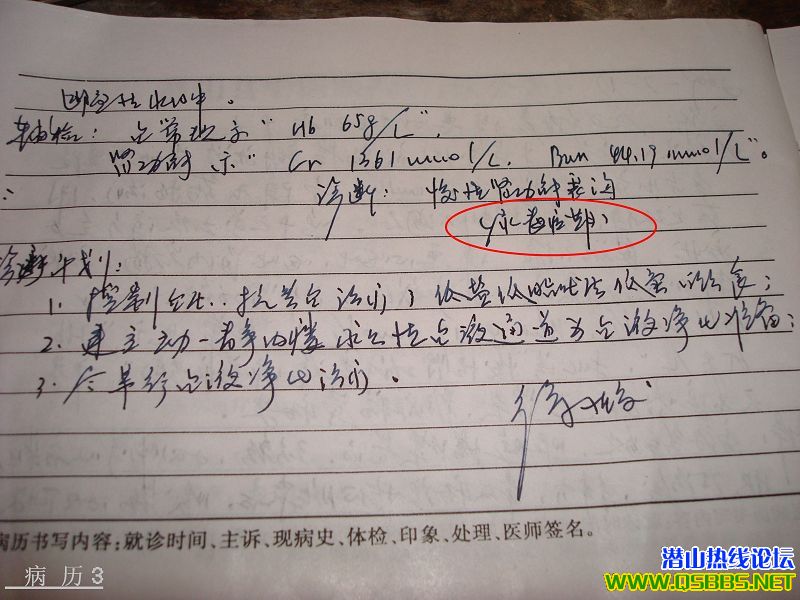 辅检：血常规示“Hb 65g/L”，
肾功能示“Cr 1361 umol/L, Bun 44.19 mmol/L”。
诊断：慢性肾功能衰竭
（尿毒症期）
诊断计划：
1. 控制血压，抗贫血治疗；低盐低脂 低 饮食；
2. 建立动—静脉内瘘 永久性血液通道为血液净化准备；
3. 尽早行血液净化治疗。
病历书写内容：就诊时间、主诉、现病史、体检、印象、处理、医师签名。
病 历 3
潜山热线论坛
WWW.QSBBS.NET